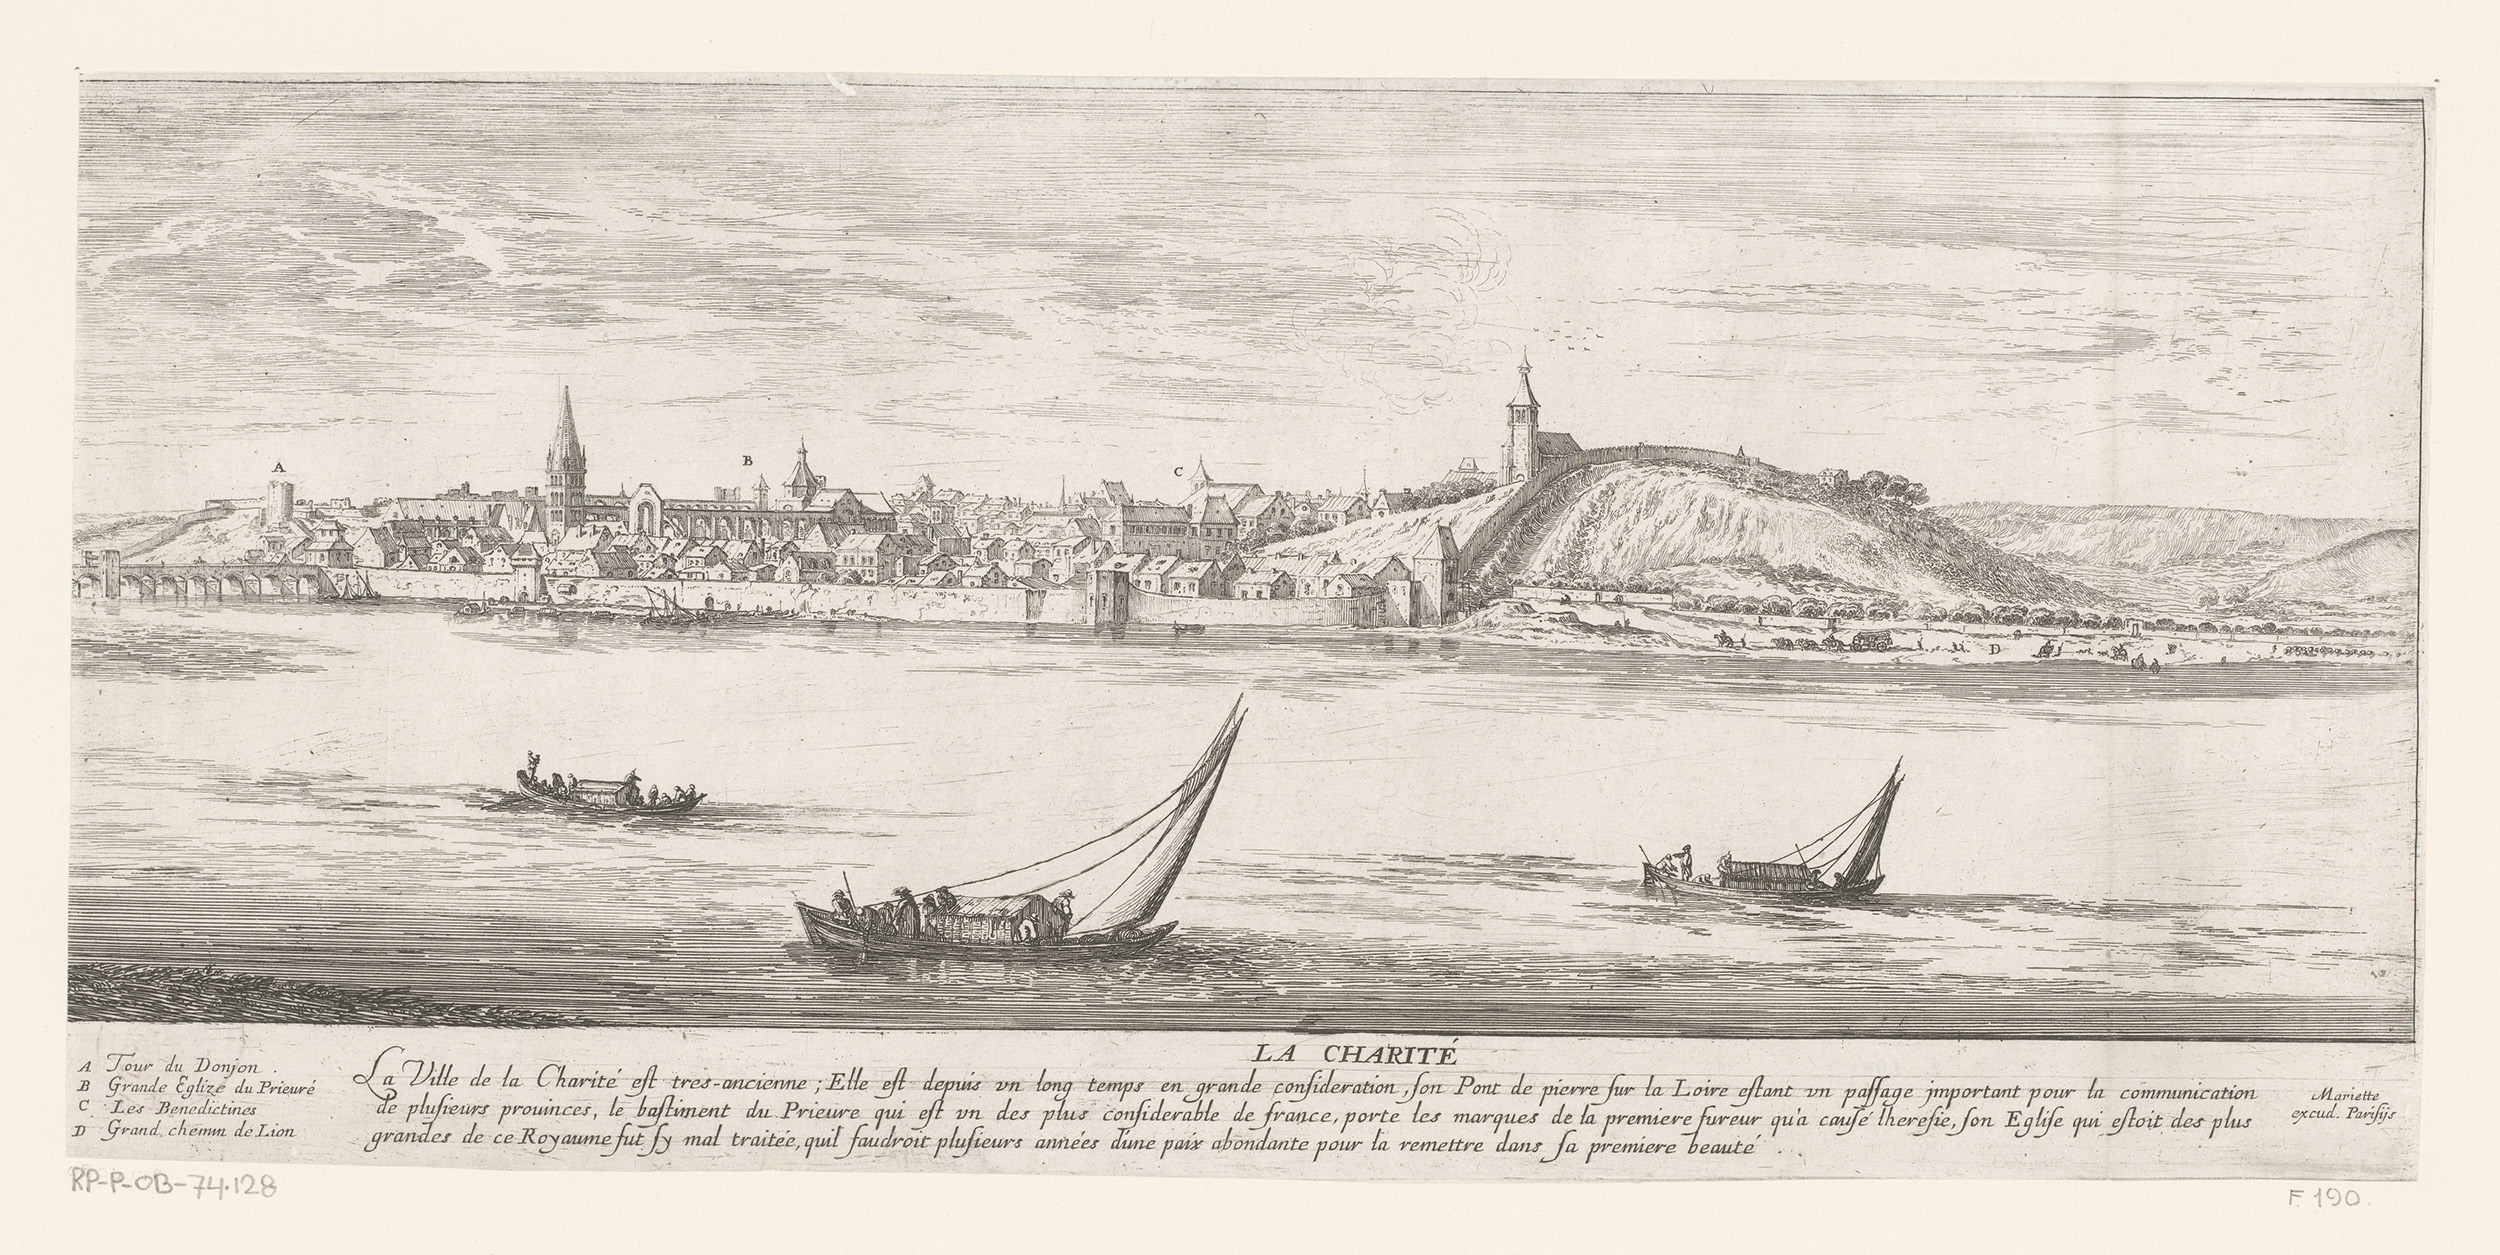 A
B
C
D
LA CHARITÉ
A Tour du Donjon.
B Grande Eglize du Prieuré
C Les Benedictines
D Grand chemin de Lion
La Ville de la Charité est tres-ancienne ; Elle est depuis vn long temps en grande consideration, son Pont de pierre sur la Loire estant vn passage jmportant pour la communication
de plusieurs prouinces, le bastiment du Prieure qui est vn des plus considerable de france, porte les marques de la premiere fureur qu'a causé lheresie, son Eglise qui estoit des plus
grandes de ce Royaume fut sy mal traitée, quil faudroit plusieurs années d'une paix abondante pour la remettre dans sa premiere beauté.
Mariette
excud. Parisijs
RP-P-OB-74.128
F 190.